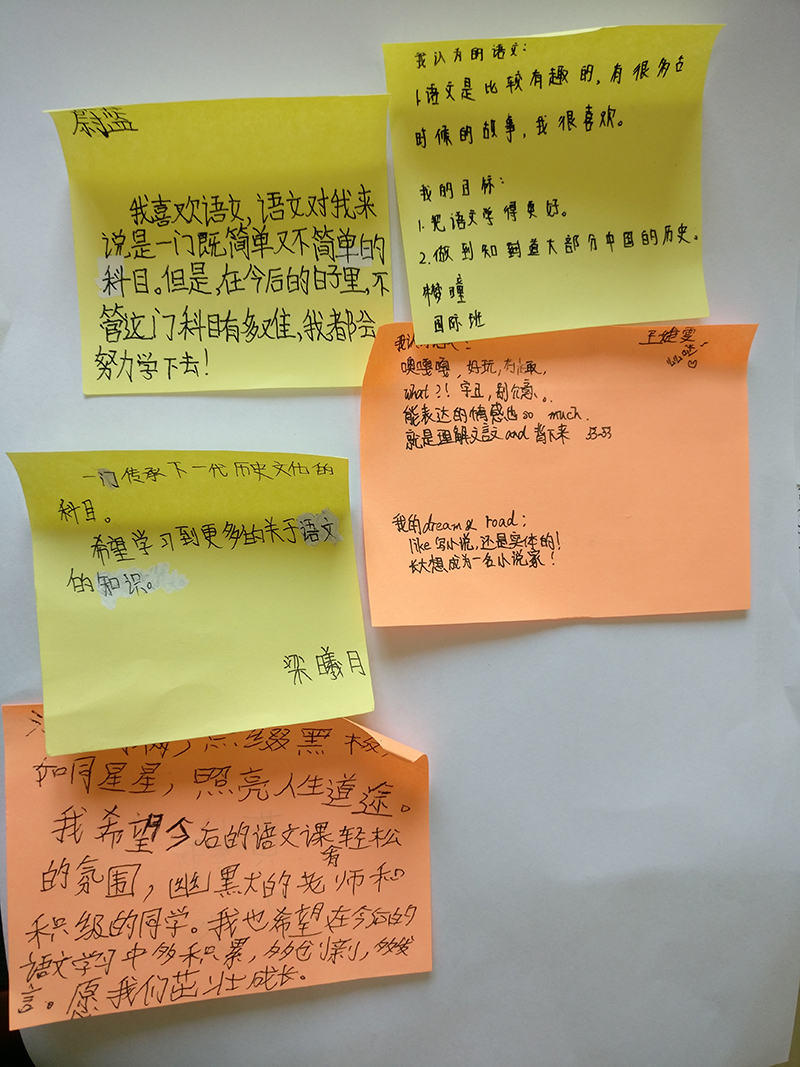 尉盗
我喜欢语文，语文对我来
说是一门既简单又不简单的
科目。但是，在今后的日子里，不
管这门科目有多难，我都会
努力学下去！
我认为的语文：
1.语文是比较有趣的，有很多古
时候的故事，我很喜欢。
我的目标：
1.把语文学得更好。
2.做到知道大部分中国的历史。
梦瞳
国际班
噢嘎嘎，好玩，有趣，
what？！字丑，别介意。
能表达的情感也so much.
就是理解文言文and背下来
我的dream & road：
like写小说，还是实体的！
长大想成为一名小说家！
一门传承下一代历史文化的
科目。
希望学习到更多的关于语文
的知识。
梁曦月
点缀黑板，
如同星星，照亮人生道途。
我希望今后的语文课有轻松
的氛围，幽默的老师和
积极的同学。我也希望在今后的
语文学习中多积累，多创新，多发
言。愿我们茁壮成长。